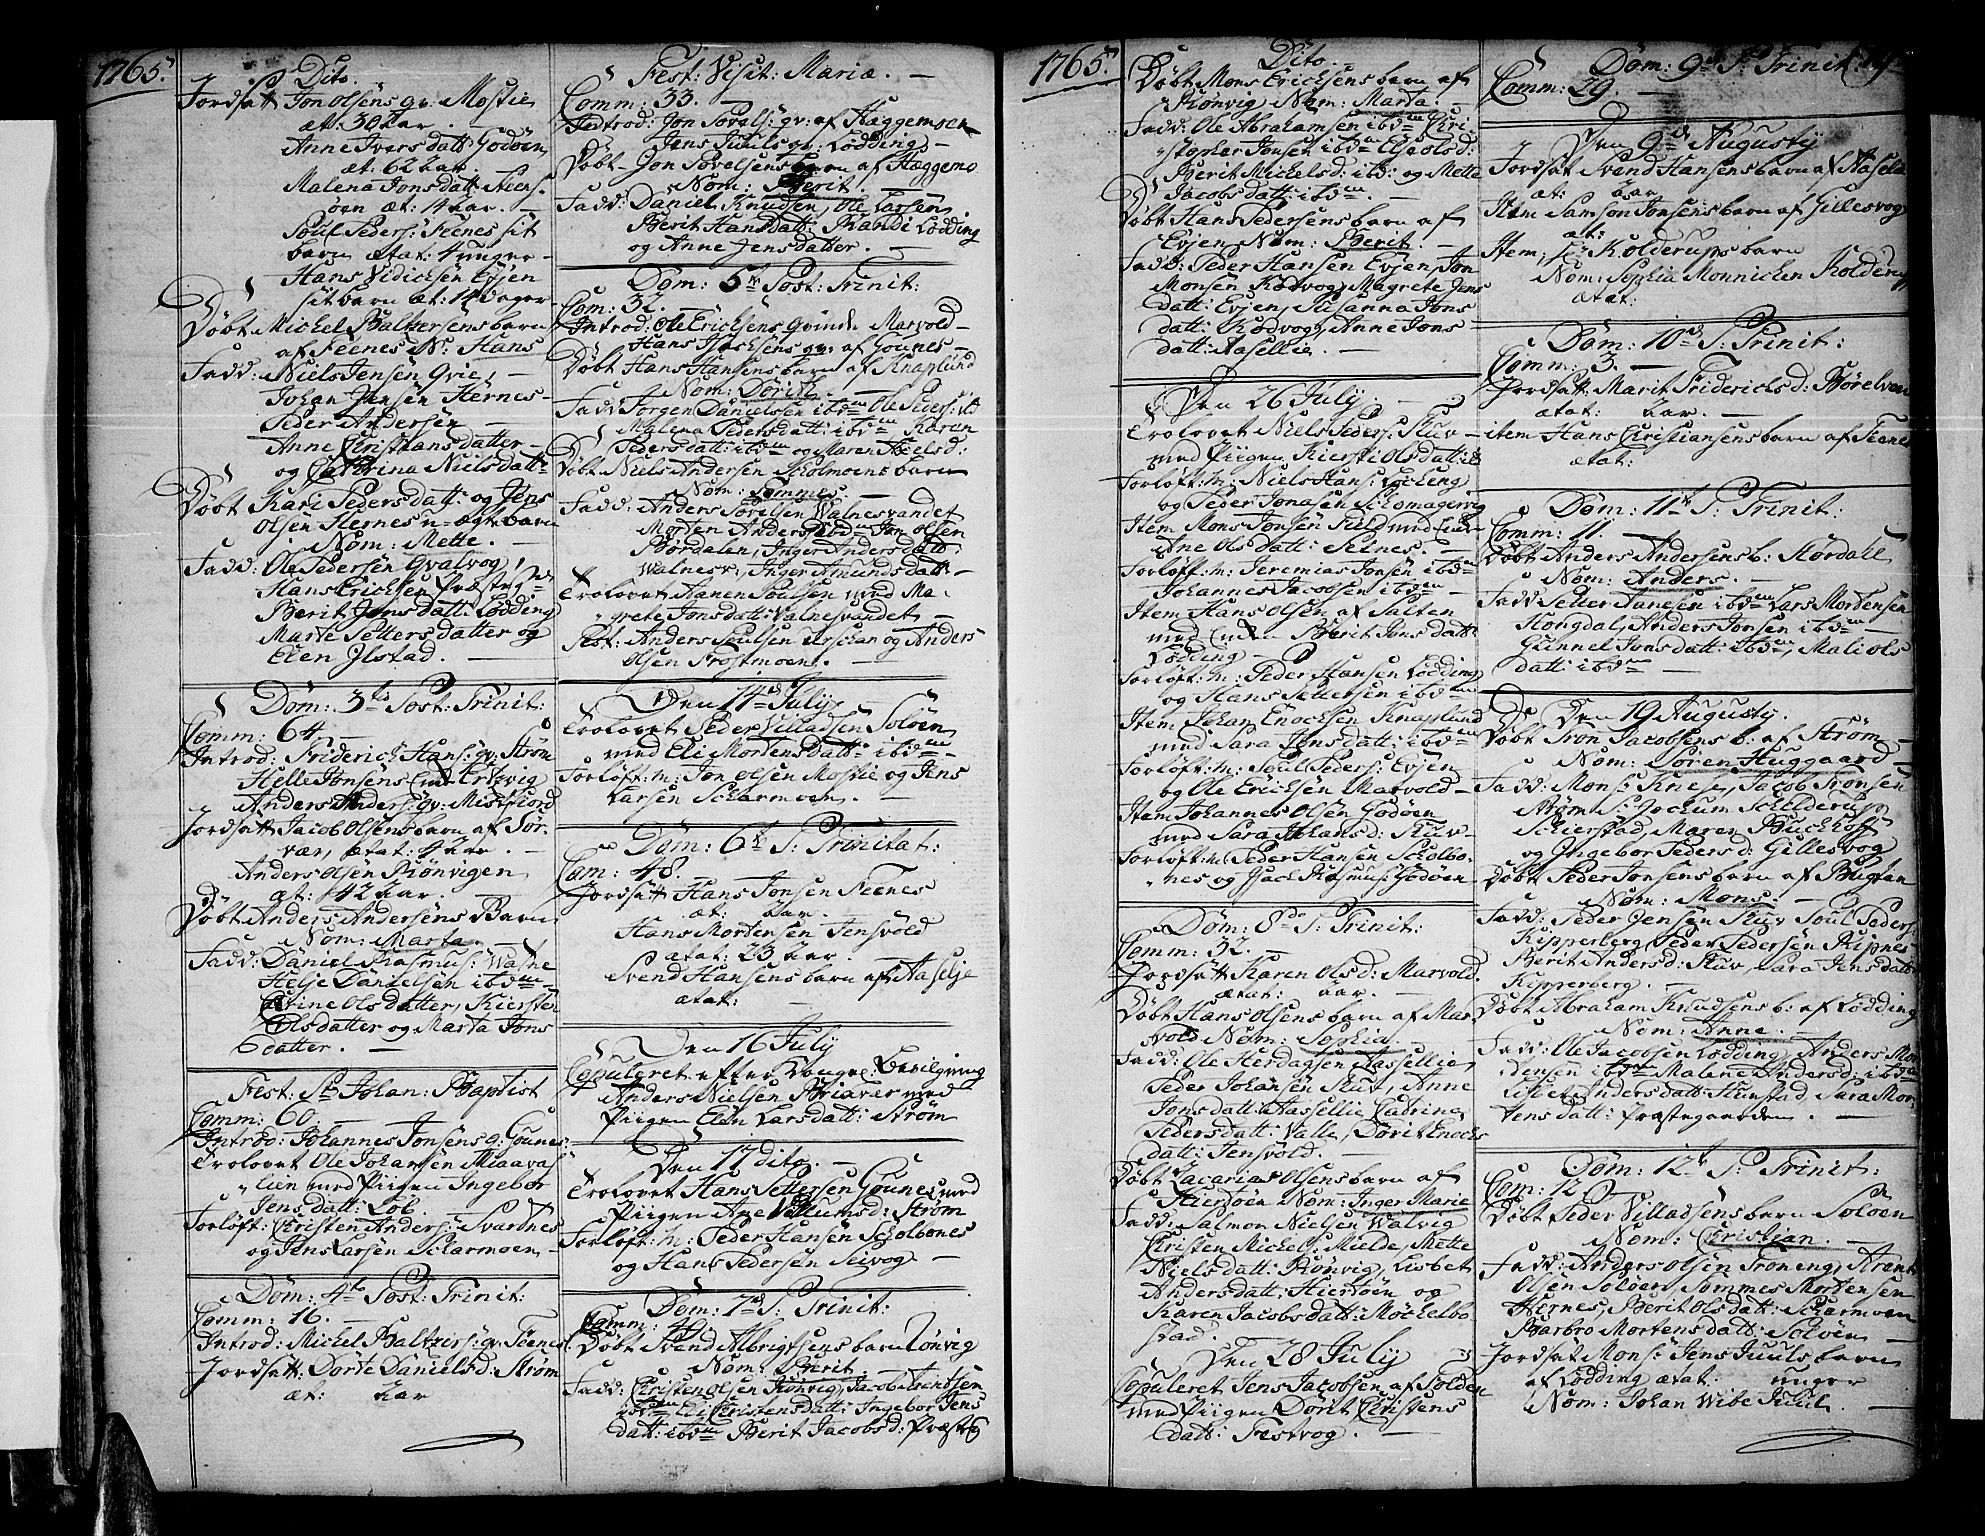 1765.
Dito.
Jordsatt Jon Olsens qv. Mostie
æt: 30 Aar. —
Anne Iversdatt: Godöen
æt: 62 Aar
Malena Jonsdatt: Steens-
öen æt: 14 Aar. —
Poul Peders: Feenes sit
barn ætat: 4 uger —
Hans Didichsen Evjen
sit barn æt: 14 dager
Döbt Michel Baltzersens barn
af Feenes N: Hans
Fadd: Niels Jensen Qvie, —
Johan Jensen Hernes —
Peder Andersen —
Anne Christiansdatter —
og Cathrina Nielsdatt:
Döbt Kari Pedersdatt: og Jens
Olsen Hernes u-ægte barn
Nom: Mette. —
Fadd: Ole Pedersen Qvalvog,
Hans Erichsen Præsteg:
Berit Jonsdatt: Lödding
Marte Pettersdatter og
Elen Ilstad. —
Dom: 3tia Post: Trinit:
Comm: 64. —
Introd: Friderich Hans: qv: Ström
Helle Jonsens
Anders Anders: qv: Mistfiord
Jordsatt Jacob Olsens barn af Sör-
vær, ætat: 4 Aar. —
Anders Olsen Rönvigen
æt: 42 Aar. —
Döbt Anders Andersens Barn
Nom: Marta. —
Fadd: Daniel Rasmus: Walne
Helje Danielsen ibdm
Stine Olsdatter, Kiersten
Olsdatter og Marta Jons
datter. —
Fest: St Johan: Baptist
Comm: 60. —
Introd: Johannes Jonsens q: Gounes:
Trolovet Ole Johansen Misavas
lien med Piigen Ingebor
Jensdatt: Löb. —
Forlöft: Christen Anders: Svartnes
og Jens Larsen Scharmoen —
Dom: 4ta Post: Trinit:
Comm: 16. —
Introd: Michel Baltzers: qv: Feenes.
Jordsatt: Dorte Daniels d: Ström
æt: Aar
Fest: Visit: Mariæ. —
Comm: 33. —
Introd: Jon Povels: qv: af Hæggemoen
Jens Juuls qv: Lödding —
Döbt Jon Povelsens barn af Hæggemo
Nom: Berit —
Fadd: Daniel Knudsen, Ole Larsen
Berit Hansdatt: Randi Lödding
og Anne Jensdatter. —
Dom: 5te Post: Trinit:
Com: 32. —
Introd: Ole Erichsens qvinde Marvold —
Hans Isachsens qv: af Gounes —
Döbt Hans Hansens barn af Knaplund
Nom: Dorith. —
Fadd: Jörgen Danielsen ibdm Ole Peders: ib
Malena Pedersdatt: ibdm Karen
Pedersdatt: ibdm og Maren Axelsd:
Döbt Niels Andersen Scholmoens barn
Nom: Tommes. —
Fadd: Anders Povelsen Walnesvandet
Morten Anders: ibdm Jon Olsen
Bördalen, Inger Andersdatt:
Walnesv: Inger Amundsdatt: —
Trolovet Hanen Poulsen med Ma-
grete Jonsdatt: Valnesvandet —
Test: Anders Poulsen Lerschar og Anders
Olsen Frostmoen. —
Den 14de July
Trolovet Peder Villadsen Solöen
med Eli Mortensdatt: ibdm —
Forlöft: m: Jon Olsen Mostie og Jens
Larsen Scharmoen. —
Dom: 6te P: Trinitat:
Com: 48. —
Jordsatt Hans Jonsen Feenes
æt: Aar.
Hans Mortensen Jensvold
ætat: 23 Aar. —
Svend Hansens barn af Aaselje
ætat: —
Den 16 July
Copuleret efter Konge: Bevilgning
Anders Nielsen Brixvær med
Piigen Elen Larsdatt: Ström
Den 17 dito. —
Trolovet Hans Pettersen Gounes med
Piigen Ane Villumsd: Ström
Forlöft: m: Peder Hansen Scholbones
og Hans Pedersen Seivog —
Dom: 7de P: Trinit:
Comm: 49. —
Döbt Svend Albrigtsens barn Rönvig
Nom: Berit —
Fadd: Christen Olsen Rönvig, Jacob
ibdm Eli Christensdatt: Ingebor Jens
datt: ibdm Berit Jacobsd: Præsteg
1765.
Dito.
Döbt Mons Erichsens barn af
Rönvig Nom: Marta.
Fadd: Ole Abrahamsen ibdm Chri
stopher Jonsen ibdm Else Olsd:
Berit Michelsd: ibd: og Mette
Jacobsdatt: ibdm. —
Döbt Hans Pedersens barn af
Evjen Nom: Berit. —
Fadd: Peder Hansen Evjen, Jon
Monsen Kodvog, Magrete Jens
datt: Evjen, Susanna Jons
datt: Kodvog, Anne Jons
datt: Aasellie. —
Den 26 July. —
Trolovet Niels Peders: Stuv —
med Piigen Kiersti Olsdatt: ib
Forlöft: m: Niels Hans: Löcheng
og Peder Jonasen Schomagervig
Item Mons Jonsen Field med
Ane Olsdatt: Selnes. —
Forlöft: m: Jeremias Jonsen ibdm
Johannes Jacobsen ibdm —
Item Hans Olsen af Salten
med Enken Berit Jonsdatt:
Lödding —
Forlöft: m: Peder Hansen Lödding
og Hans Pettersen ibdm
Item Johan Enochsen Knaplund
med Sara Jensdatt: ibdm
Forlöft: m: Poul Peders: Evjen
og Ole Erichsen Marvold —
Item Johannes Olsen Godöen
med Sara Johansd: Stuv —
Forlöft: m: Peder Hansen Scholbo-
nes og Isach Rasmus: Godöen
Dom: 8de P: Trinit:
Comm: 32. —
Jordsatt Karen Olsd: Marvold
ætat: Aar. —
Döbt Hans Olsens barn af Mar-
vold Nom: Sophia. —
Fadd: Ole Herdagsen Aasellie
Peder Johansen Stuv, Anne
Jonsdatt: Aasellie Catrina
Pedersdatt: Valle, Dorit Enochs
datt: Jensvold. —
Döbt Zacarias Olsens barn af
Hiertöen Nom: Inger Marie
Fadd: Salmon Nielsen Walvig
Christen Michels: Mielde, Mette
Nielsdatt: Rönvig, Lisbet
Andersdatt: Hiertöen og
Karen Jacobsdatt: Möchelbo-
stad. —
Den 28 July
Copuleret Jens Jacobsen af Solden
med Piigen Dorit Christens
datt: Festvog. —
Dom: 9de P: Trinit:
Comm: 29. —
Den 9de Augusty
Jordsat Svend Hansens barn af Aaselie
æt: Aar
Item Samson Jonsens barn af Gillesvog
æt:
Item, Sr Kolderups barn
Nom: Sophia Monnichen Kolderup
ætat:
Dom: 10de P: Trinit:
Comm: 3. —
Jordsatt: Marit Friderichsd: Börelven
ætat: Aar. —
item Hans Christiansens barn af Feenes
ætat:
Dom: 11te P: Trinit:
Comm: 11. —
Döbt Anders Andersens b: Stordahl
Nom: Anders. —
Fadd Petter Hansen ibdm Lars Mortensen
Kongdal, Anders Jonsen ibdm —
Gunnel Jonsdatt: ibdm, Mali Ols
datt: ibdm —
Den 19 Augusty.
Döbt Tron Jacobsens b: af Ström —
Nom: Sören Huggaard —
Fadd: Mons: Knese, Jacob Tronsen
Ström Sr: Jochum Schelderup
Schierstad, Maren Buchholt
og Ingebor Pedersd: Gillesvog
Döbt Peder Jonsens barn af Bugten
Nom: Mons: —
Fadd: Peder Jensen Stuv Poul Peders:
Kipperberg, Peder Pedersen Ripnes
Berit Andersd: Stuv, Sara Jensdatt:
Kipperberg. —
Döbt Abraham Knudsens b: af Lödding
Nom: Anne. —
Fadd: Ole Jacobsen Lödding, Anders Mor-
tensen ibdm Malene Andersd: ibdm
Lisbet Andersdatt: Hunstad, Sara Mor-
tensdatt: Præstegaarden. —
Dom: 12te P: Trinit:
Com: 12. —
Döbt Peder Villadsens barn Solöen
Nom: Christian. —
Fadd: Anders Olsen Troneng,
Olsen Solöen, Tommes Mortensen
Hernes, Berit Olsdatt: Scharmoen
Barbro Mortensdatt: Solöen —
Jordsat Mons: Jens Juuls barn
af Lödding ætat: uger
Nom: Johan Wibe Juul. —